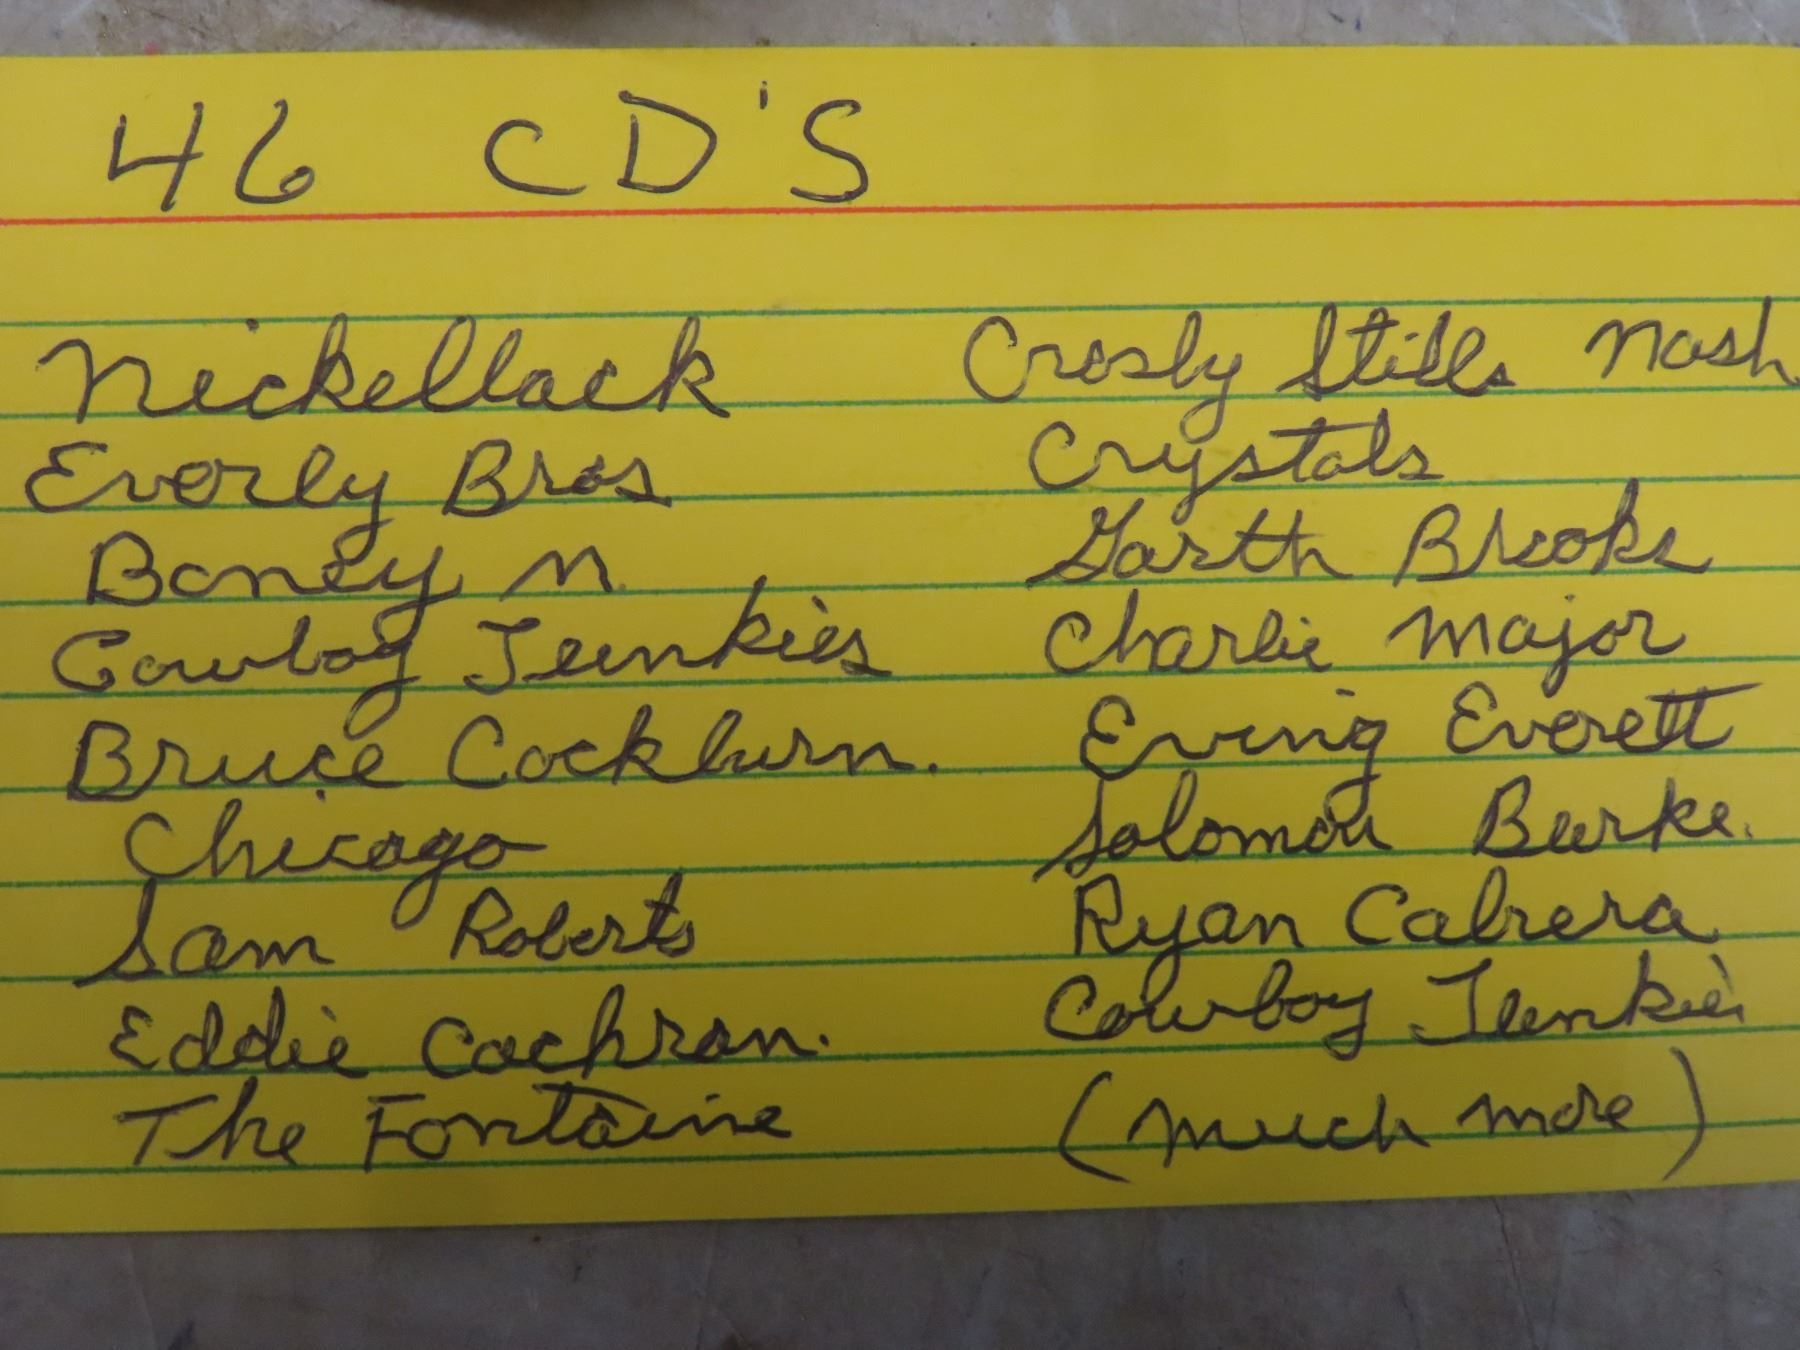 46 CD'S
Nickellack
Everly Bros
Boney M.
Cowboy Junkies
Bruce Cockburn.
Chicago
Sam Roberts
Eddie Cochran.
The Fontaine
Crosby Stills Nash
Crystals
Garth Brooks
Charlie Major
Eving Everett
Solomon Burke.
Ryan Cabrera
Cowboy Junkies
(much more)